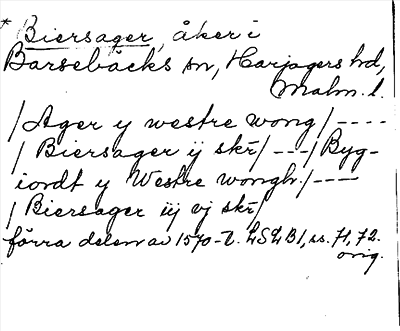 * Biersager, åker i
Barsebäcks sn, Harjagers hd,
Malm. l.
/ Ager y westre wong / ----
/ Biersager ij skr̄ / --- / Byg-
iordt y Westre wongh. / ---
/ Biersager iij vj skr̄ /
förra delen av 1570-t. LSLB1, ss. 71, 72.
orig.